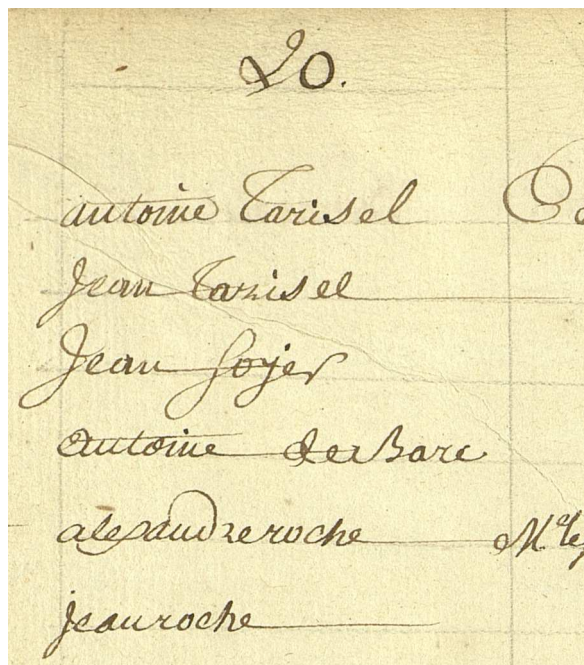 20.
antoine Tarisel
Jean Tarisel
Jean soyer
antoine
alexandre roche
jean roche